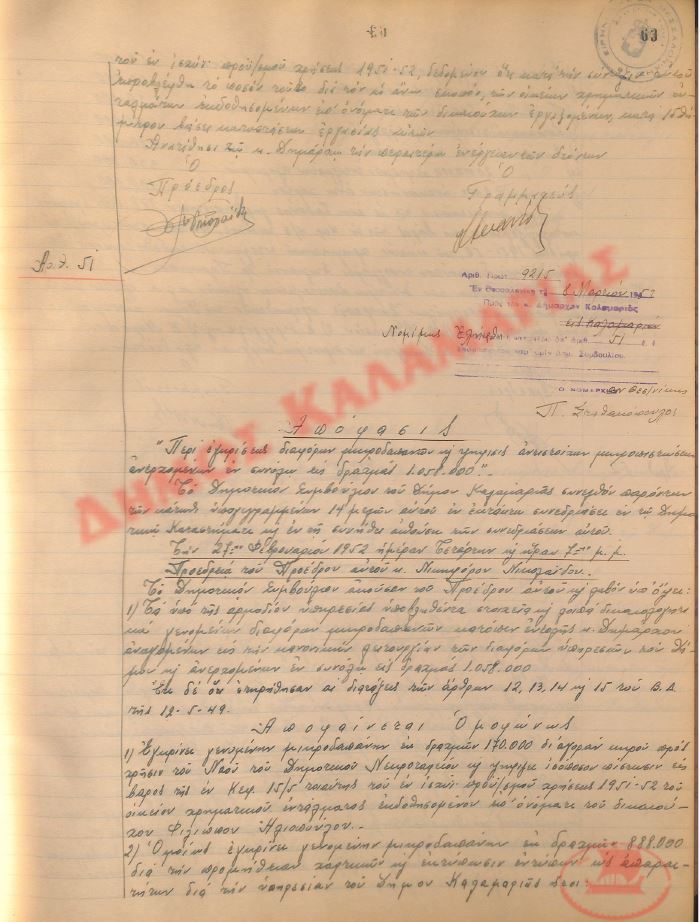 63
τοῦ ἐν ἰσχύι προϋ/σμοῦ χρήσεως 1951-52, δεδομένου ὅτι κατὰ τὴν σύνταξιν αὐτοῦ
προεβλέφθη τὸ ποσὸν τοῦτο διὰ τὸν ὡς ἄνω σκοπόν, τῶν οἰκείων χρηματικῶν ἐν-
ταλμάτων ἐκδοθησομένων ἐπ' ὀνόματι τῶν δικαιούχων ἐργαζομένων, κατὰ 15θή-
μερον βάσει καταστάσεων ἐργασίας αὐτῶν
Ἀνατίθησι τῷ κ. Δημάρχῳ τὴν περαιτέρω ἐνέργειαν τῶν δεόντων
Ὁ Ὁ
Πρόεδρος Γραμματεύς
Ἀριθ. 51
Ἀριθ. Πρωτ. 9215
Ἐν Θεσσαλονίκῃ τῇ 8 Μαρτίου 195
Πρὸς τὸν κ. Δήμαρχον Καλαμαριᾶς
εἰς Καλαμαριάν
Νομίμως ἐλήφθη ἀριθ. 51
Συμβουλίου.
Ο ΝΟΜΑΡΧΗΣ Θεσ/νίκης
Π.
ΔΗΜΟΣ ΚΑΛΑΜΑΡΙΑΣ
Ἀπόφασις
"Περὶ ἐγκρίσεως διαφόρων μικροδαπανῶν κ ψηφίσεως ἀντιστοίχων μικροπιστώσεων
ἀνερχομένων ἐν συνόλῳ εἰς δραχμὰς 1.058.000".-
Τὸ Δημοτικὸν Συμβούλιον τοῦ Δήμου Καλαμαριᾶς συνελθὸν παρόντων
τῶν κάτωθι ὑπογεγραμμένων 14 μελῶν αὐτοῦ ἐν ἐκτάκτῳ συνεδριάσει ἐν τῷ Δημο-
τικῷ Καταστήματι κ ἐν τῇ συνήθει αἰθούσῃ τῶν συνεδριάσεων αὐτοῦ.
Τὴν 27ην Φεβρουαρίου 1952 ἡμέραν Τετάρτην κ ὥραν 7ην μ.μ.
Προεδρείᾳ τοῦ Προέδρου αὐτοῦ κ. Νικηφόρου Νικολαΐδου.-
Τὸ Δημοτικὸν Συμβούλιον ἀκοῦσαν τοῦ Προέδρου αὐτοῦ κ λαβὸν ὑπ' ὄψει:
1) Τὰ ὑπὸ τῆς ἁρμοδίου ὑπηρεσίας ὑποβληθέντα στοιχεῖα κ λοιπὰ δικαιολογητι-
κὰ γενομένων διαφόρων μικροδαπανῶν κατόπιν ἐντολῆς κ. Δημάρχου
ἀναγομένων εἰς τὴν κανονικὴν λειτουργίαν τῶν διαφόρων ὑπηρεσιῶν τοῦ Δή-
μου κ ἀνερχομένων ἐν συνόλῳ εἰς δραχμὰς 1.058.000
Ἐπειδὴ ἐτηρήθησαν αἱ διατάξεις τῶν ἄρθρων 12, 13, 14 κ 15 τοῦ Β.Δ.
τῆς 12-5-49.
Ἀποφαίνεται Ὁμοφώνως
1) Ἐγκρίνει γενομένην μικροδαπάνην ἐκ δραχμῶν 170.000 δι' ἀγορὰν κηροῦ πρὸς
χρῆσιν τοῦ Ναοῦ τοῦ Δημοτικοῦ Νεκροταφείου κ ψηφίζει ἰσόποσον πίστωσιν εἰς
βάρος τῆς ἐν Κεφ. 15/5 τοιαύτης τοῦ ἐν ἰσχύι προϋ/σμοῦ χρήσεως 1951-52 τοῦ
οἰκείου χρηματικοῦ ἐντάλματος ἐκδοθησομένου ἐπ' ὀνόματι τοῦ δικαιού-
χου Φιλίππου Ἡλιοπούλου.-
2) Ὁμοίως ἐγκρίνει γενομένην μικροδαπάνην ἐκ δραχμῶν 888.000
διὰ τὴν προμήθειαν χαρτικῶν κ ἐκτύπωσιν ἐντύπων ὡς ἀπαραι-
τήτων διὰ τὴν ὑπηρεσίαν τοῦ Δήμου Καλαμαριᾶς